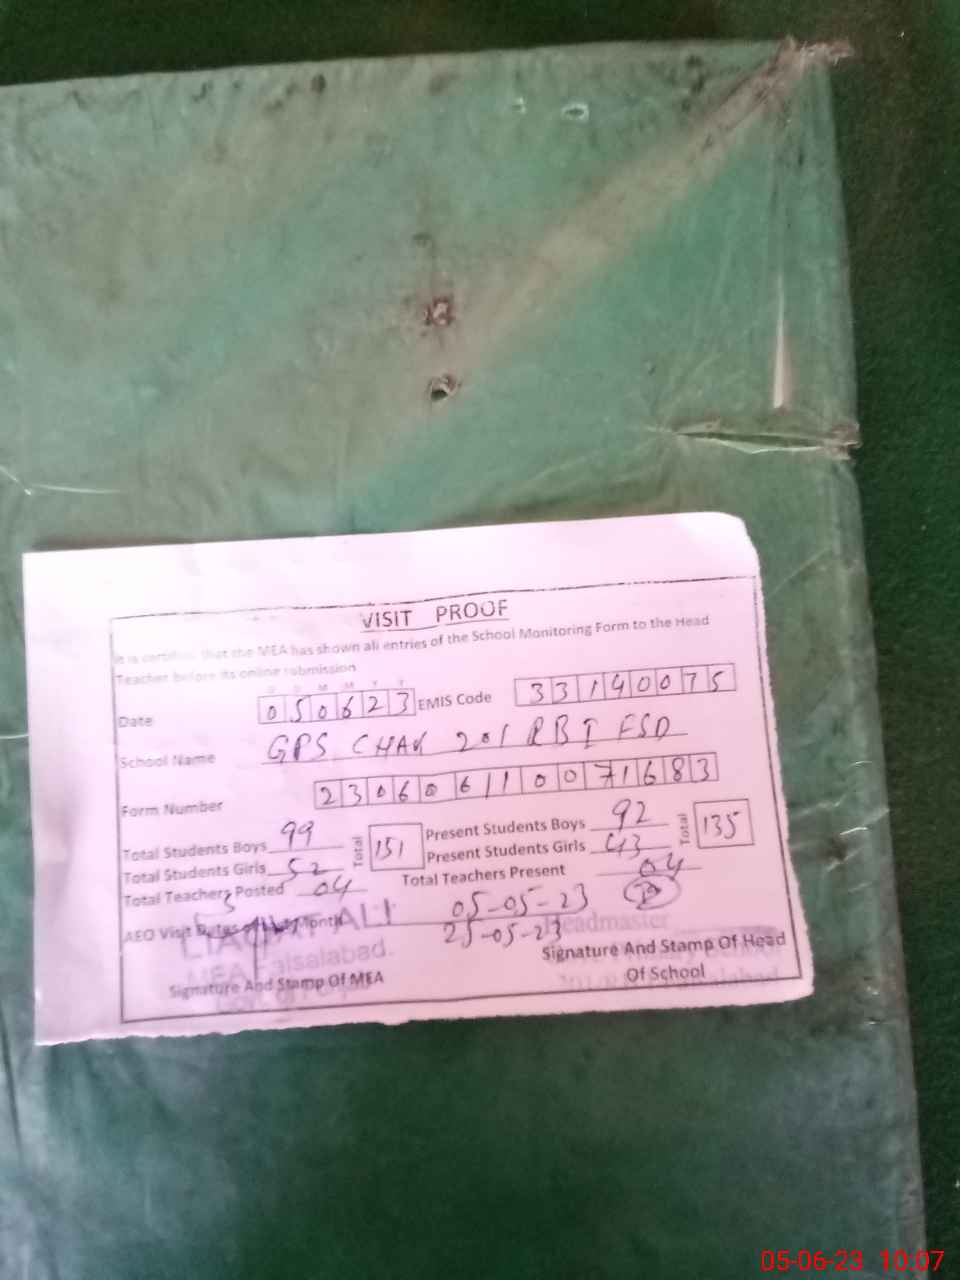 VISIT PROOF
It is certified that the MEA has shown all entries of the School Monitoring Form to the Head
Teacher before its online submission
D D M M Y Y
Date 050623 EMIS Code 33140075
School Name GPS CHAK 201 RB I FSD
Form Number 23060611007 1683
Total Students Boys 99 Total 151 Present Students Boys 92 Total 135
Total Students Girls 52 Present Students Girls 43
Total Teachers Posted 04 Total Teachers Present 04
AEO Visit Dates of Last Month 05-05-23
25-05-23
LIAQAT ALI
MEA Faisalabad.
Headmaster
Signature And Stamp Of MEA
Signature And Stamp Of Head
Of School
05-06-23 10:07